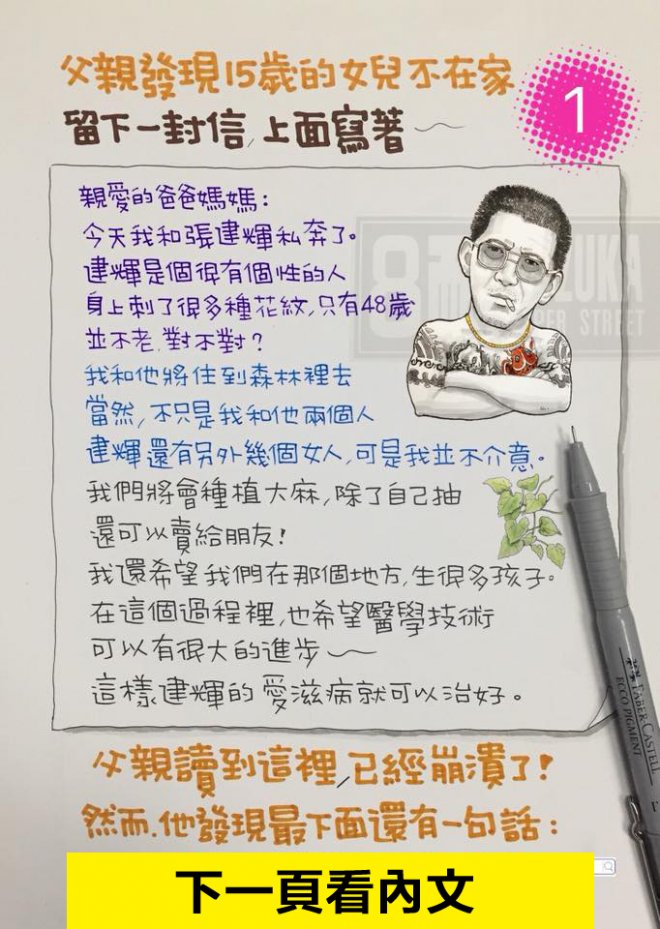 父親發現15歲的女兒不在家
1
留下一封信,上面寫著~
親愛的爸爸媽媽:
今天我和張建輝私奔了。
建輝是個很有個性的人
身上刺了很多種花紋,只有48歲
並不老,對不對?
我和他將住到森林裡去
當然,不只是我和他兩個人
建輝還有另外幾個女人,可是我並不介意。
我們將會種植大麻,除了自己抽
還可以賣給朋友!
我還希望我們在那個地方,生很多孩子。
在這個過程裡,也希望醫學技術
可以有很大的進步~
這樣建輝的愛滋病就可以治好。
FABER-CASTELL
ECCO PIGMENT
父親讀到這裡,已經崩潰了!
然而,他發現最下面還有一句話:
下一頁看內文